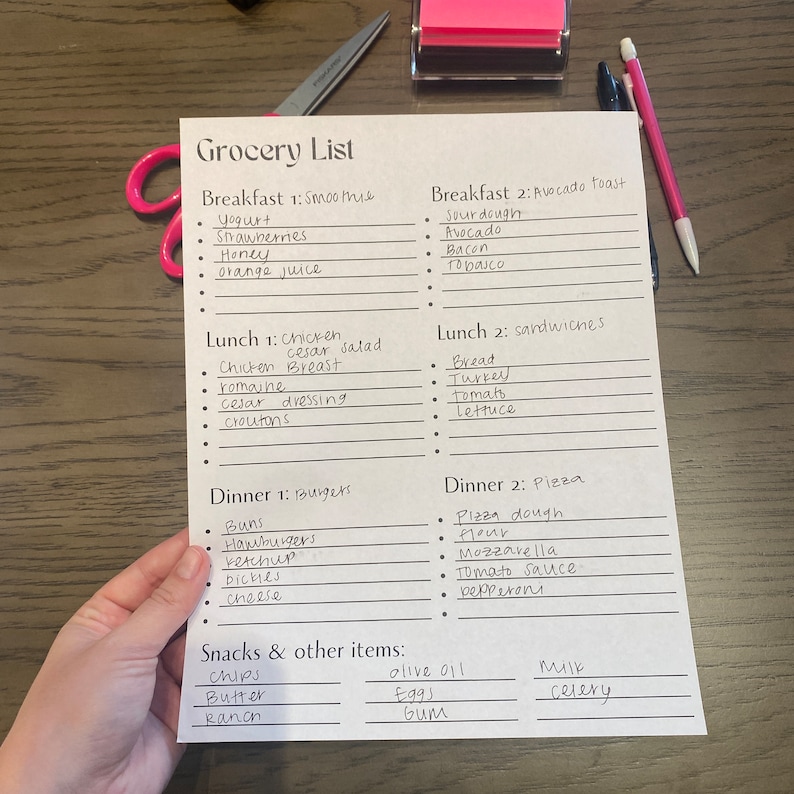 FISKARS
Grocery List
Breakfast 1: Smoothie
Yogurt
Strawberries
Honey
orange juice
Breakfast 2: Avocado toast
Sourdough
Avocado
Bacon
Tobasco
Lunch 1: Chicken
cesar salad
Chicken Breast
romaine
cesar dressing
croutons
Lunch 2: Sandwiches
Bread
Turkey
tomato
lettuce
Dinner 1: Burgers
Buns
Hamburgers
ketchup
pickles
cheese
Dinner 2: Pizza
Pizza dough
flour
Mozzarella
Tomato sauce
pepperoni
Snacks & other items:
chips
Butter
Ranch
olive oil
Eggs
Gum
Milk
celery